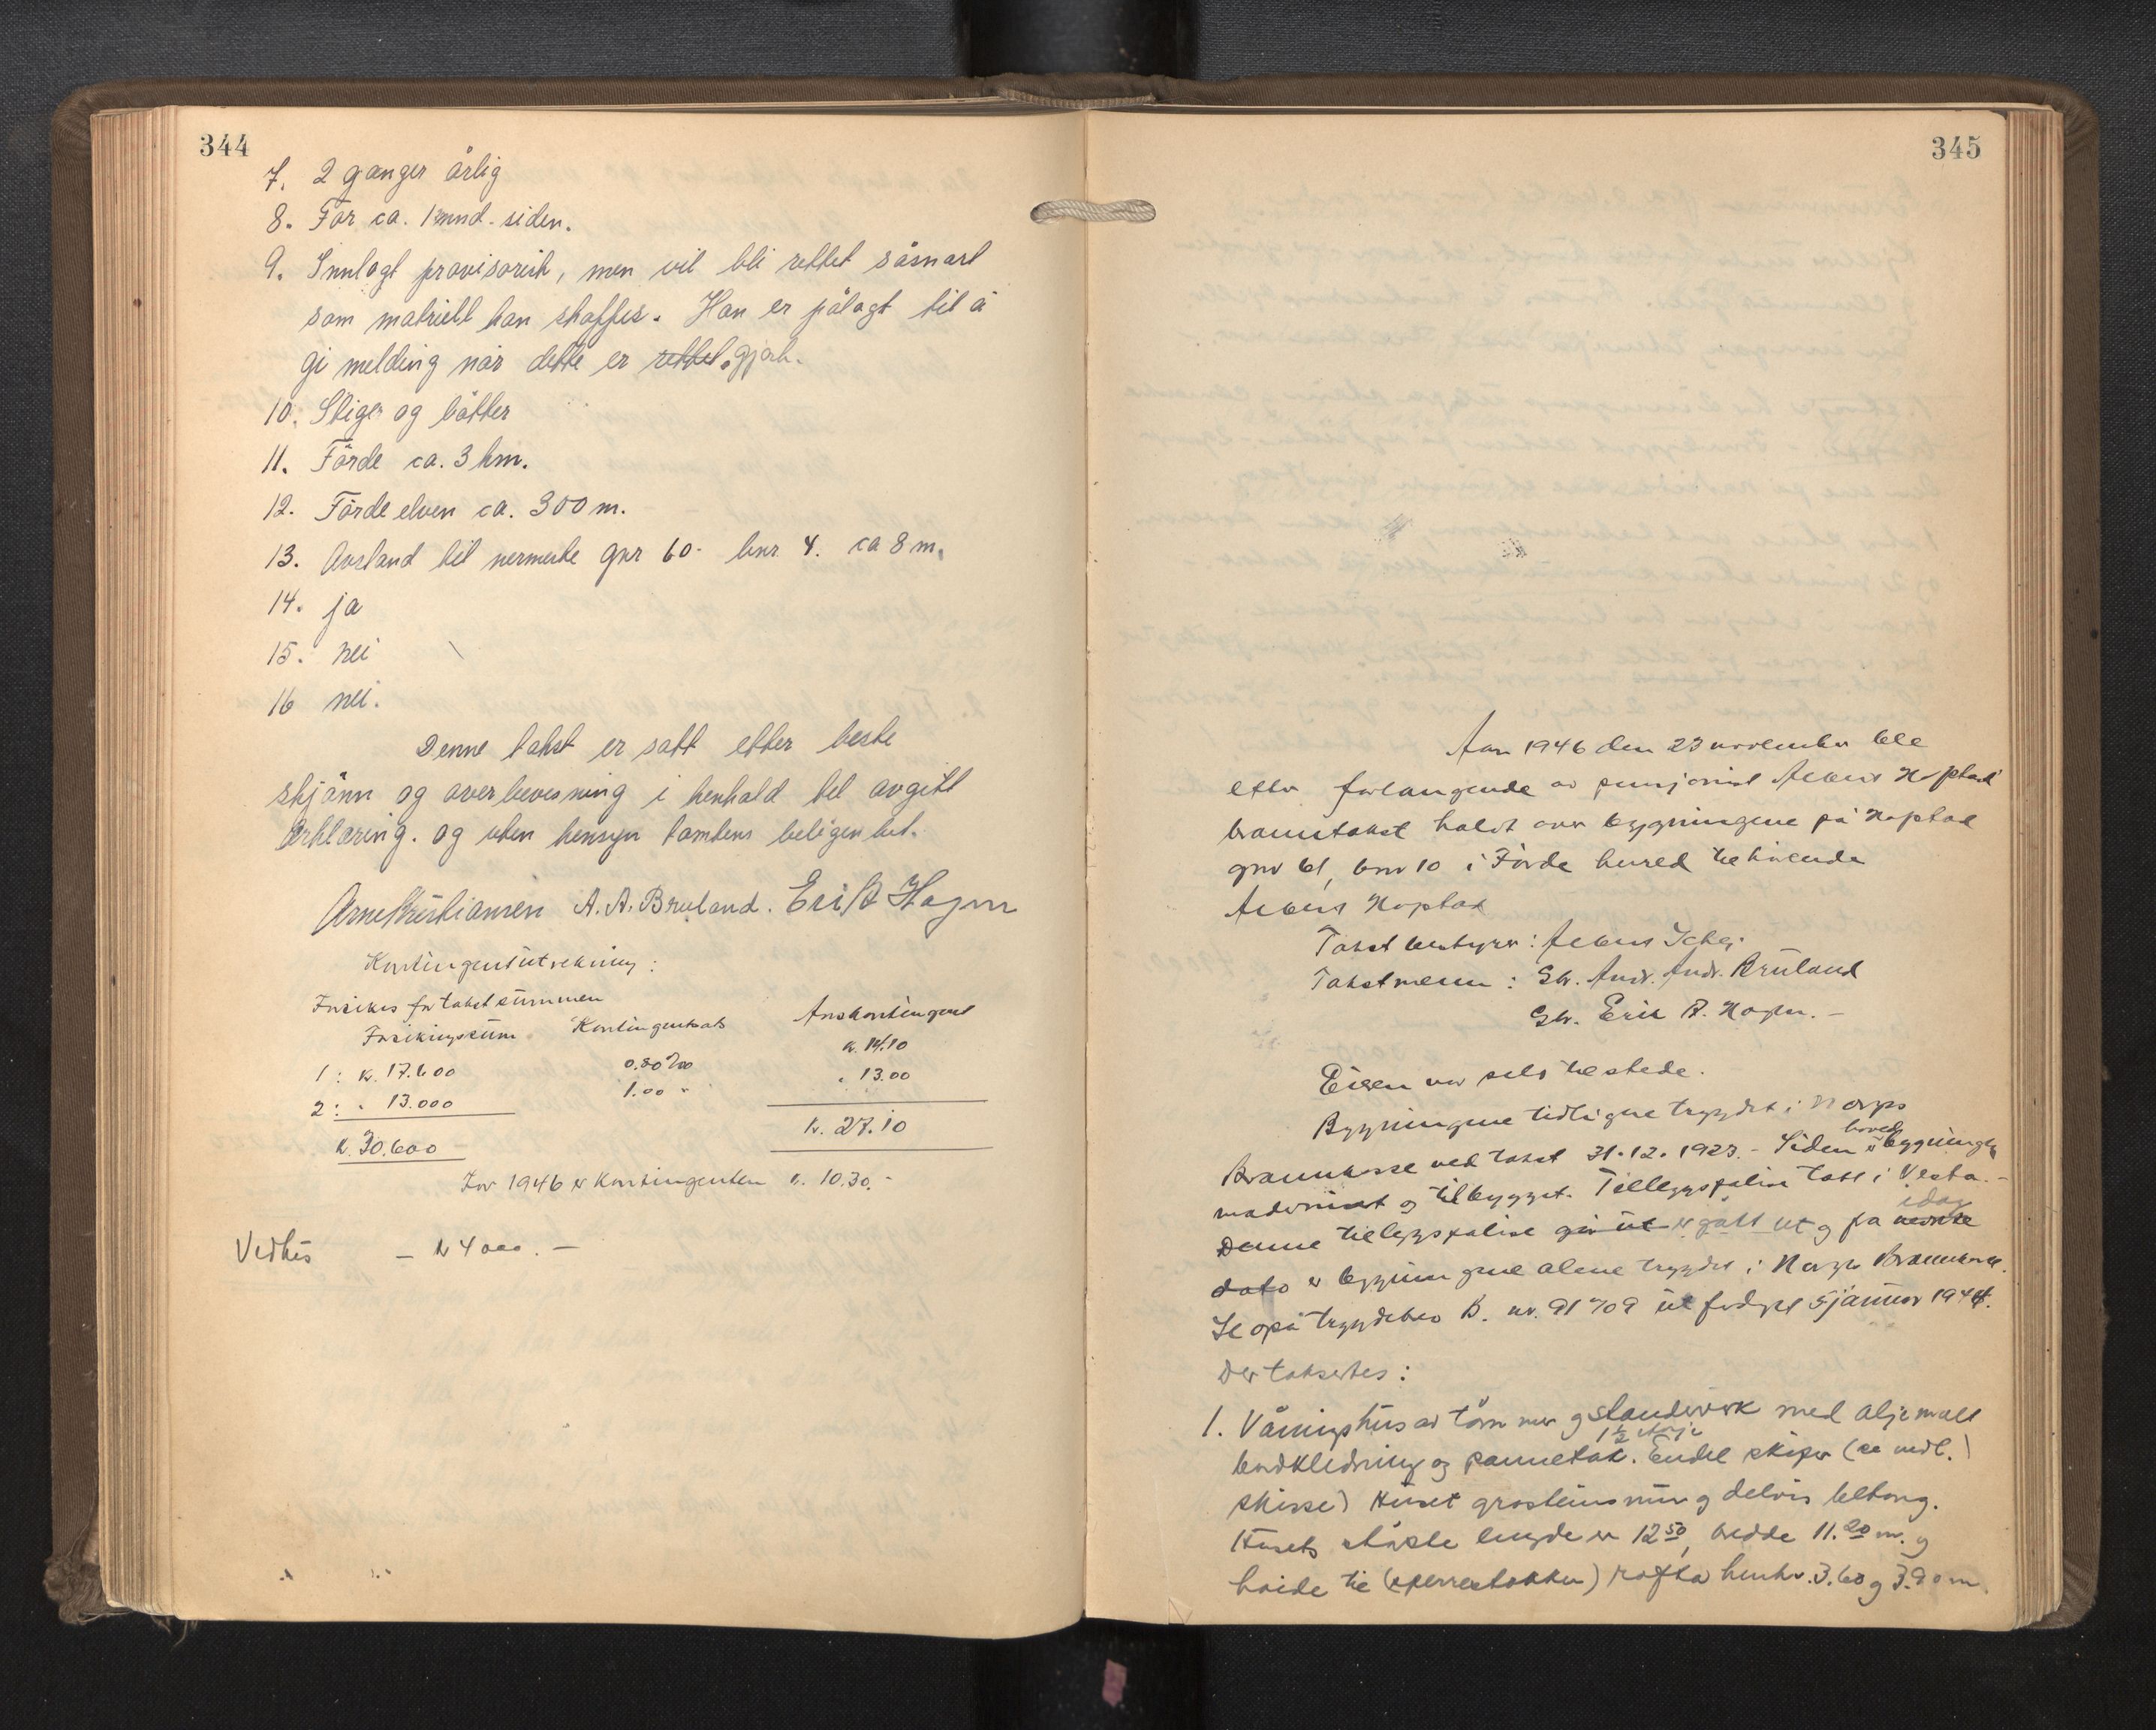 344
7. 2 ganger årlig
8. For ca. 1 mnd. siden.
9. Innlagt provisorisk, men vil bli rettet såsnart
som matriell kan skaffes. Han er pålagt til å
gi melding når dette er rettet. gjort.
10. Stiger og bøtter
11. Förde ca. 3 km.
12. Förde elven ca. 300 m.
13. Avstand til nermeste gnr 60 - bnr 4. ca 8 m.
14. ja
15. nei
16 nei.
Denne takst er satt etter beste
skjönn og overbevisning i henhold til avgitt
erklæring. og uten hensyn tomtens beligenhet.
Arne Kristiansen A. A. Bruland. Erik A Hagen
Kontingentutrekning:
Forsikres for takstsummen
Forsikringssum Kontingentsats Årskontingent
1: kr. 17.600 0.80 ‰ kr. 14.10
2: " 13.000 1.00 " " 13.00
kr. 30.600 kr. 27.10
For 1946 er kontingenten kr. 10.30.-
Vedhus - kr 4000.-
345
Aar 1946 den 23 november ble
etter forlangende av pensjonist Hopstad
branntakst holdt over bygningene på Hopstad
gnr 61, bnr 10 i Förde herred tilhörende
Hopstad
Takstbestyrer:
Takstmenn: Gbr. Andr. Andr. Bruland
Gbr. Erik A. Hagen. -
Eieren var selv til stede.
Bygningene tidligere trygdet i Norges
Brannkasse ved takst 31.12.1923. - Siden er hovedbygningen
modernisert og tilbygget. Tilleggspolise tatt i Vesta. -
Denne tilleggspolise går ut er gått ut og fra neste idag
dato er bygningene alene trygdet i Norges Brannkasse.
Se også trygdebev B. nr. 91709 utferdiget 5 januar 1944.
Der takseres:
1. Våningshus av tömmer og standerverk med oljemalt
bordkledning og pannetak. 1½ etasje Endel skifer (se vedl.)
skisse) Huset grosteinsmur og delvis betong.
Husets störste lengde er 12.50, bredde 11.20 m. og
höide til (sperrestokker) rofta henhv. 3.60 og 3.90 m.